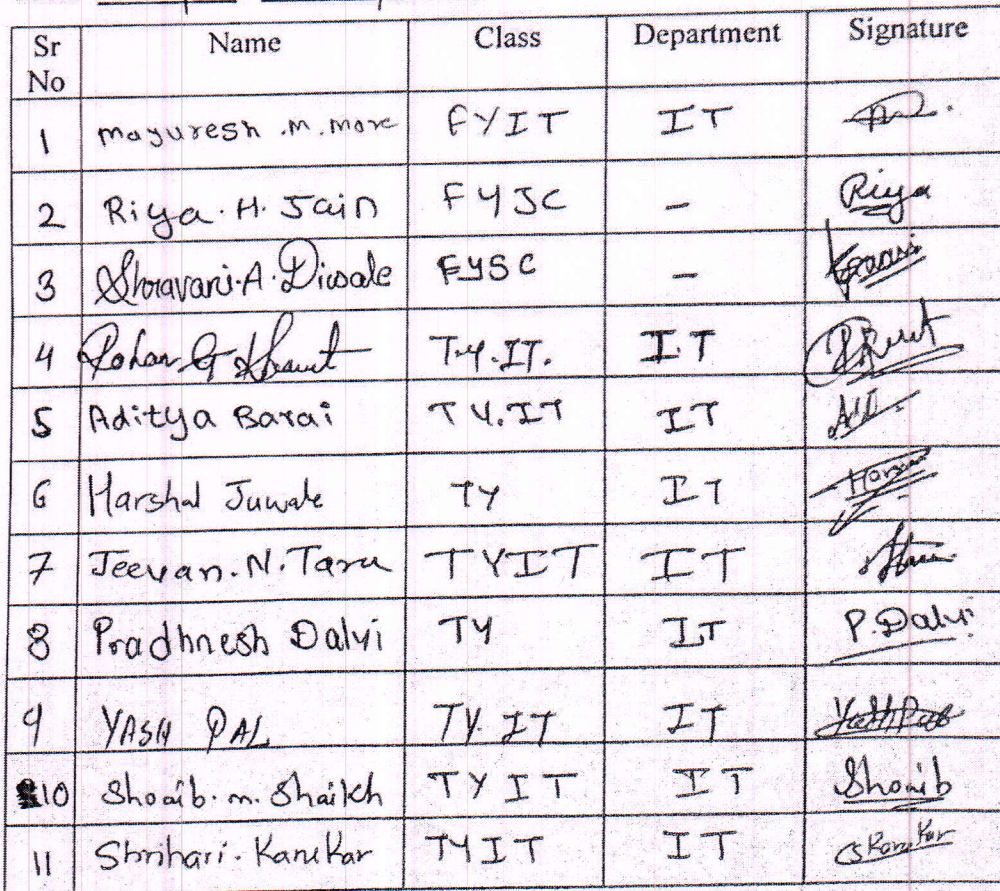 Sr No Name Class Department Signature
1 Mayuresh .M. More FYIT IT
2 Riya. H. Jain FYJC - Riya
3 Shravani. A. Diwale FYSC -
4 Rohan G T.Y.IT. IT
5 Aditya Barai TY.IT IT
6 Harshal Juwale TY IT
7 Jeevan. N. Taru TYIT IT
8 Pradhnesh Dalvi TY IT P. Dalvi
9 YASH PAL TY IT IT Yash Pal
10 Shoaib. m. Shaikh TYIT IT Shoaib
11 Shrihari. Kanekar TYIT IT